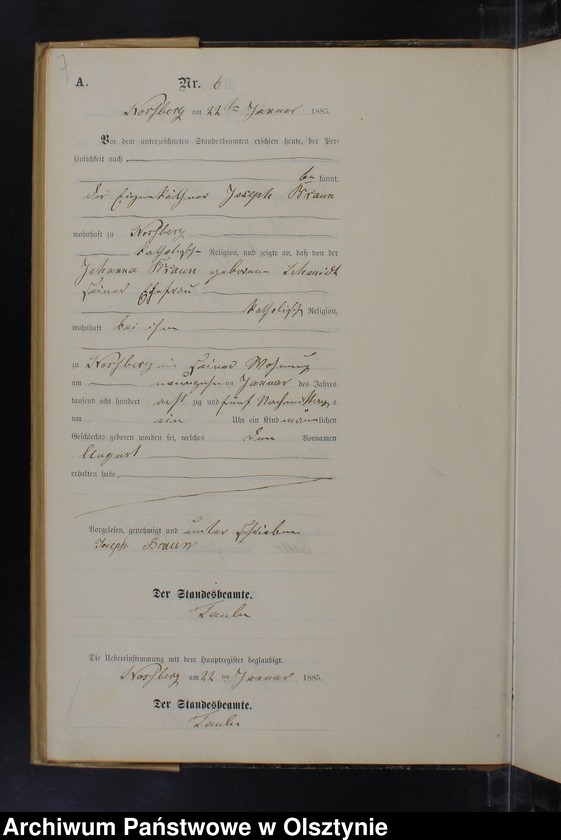 7
A. Nr. 6
am 22ten Januar 1885.
Vor dem unterzeichneten Standesbeamten erschien heute, der Per-
sönlichkeit nach
be kannt,
der Eigenkäthner Joseph Braun
wohnhaft zu
katholischer Religion, und zeigte an, daß von der
Johanna Braun geborene Schmidt
seiner Ehefrau
katholisch Religion,
wohnhaft bei ihm
zu in seiner Wohnung
am neunzehn ten Januar des Jahres
tausend acht hundert acht zig und fünf Nachmittags
um ein Uhr ein Kind männlichen
Geschlechts geboren worden sei, welches den Vornamen
August
erhalten habe,
Vorgelesen, genehmigt und unterschrieben
Joseph Braun
Der Standesbeamte.
Die Uebereinstimmung mit dem Hauptregister beglaubigt.
am 22 ten Januar 1885.
Der Standesbeamte.
Archiwum Państwowe w Olsztynie